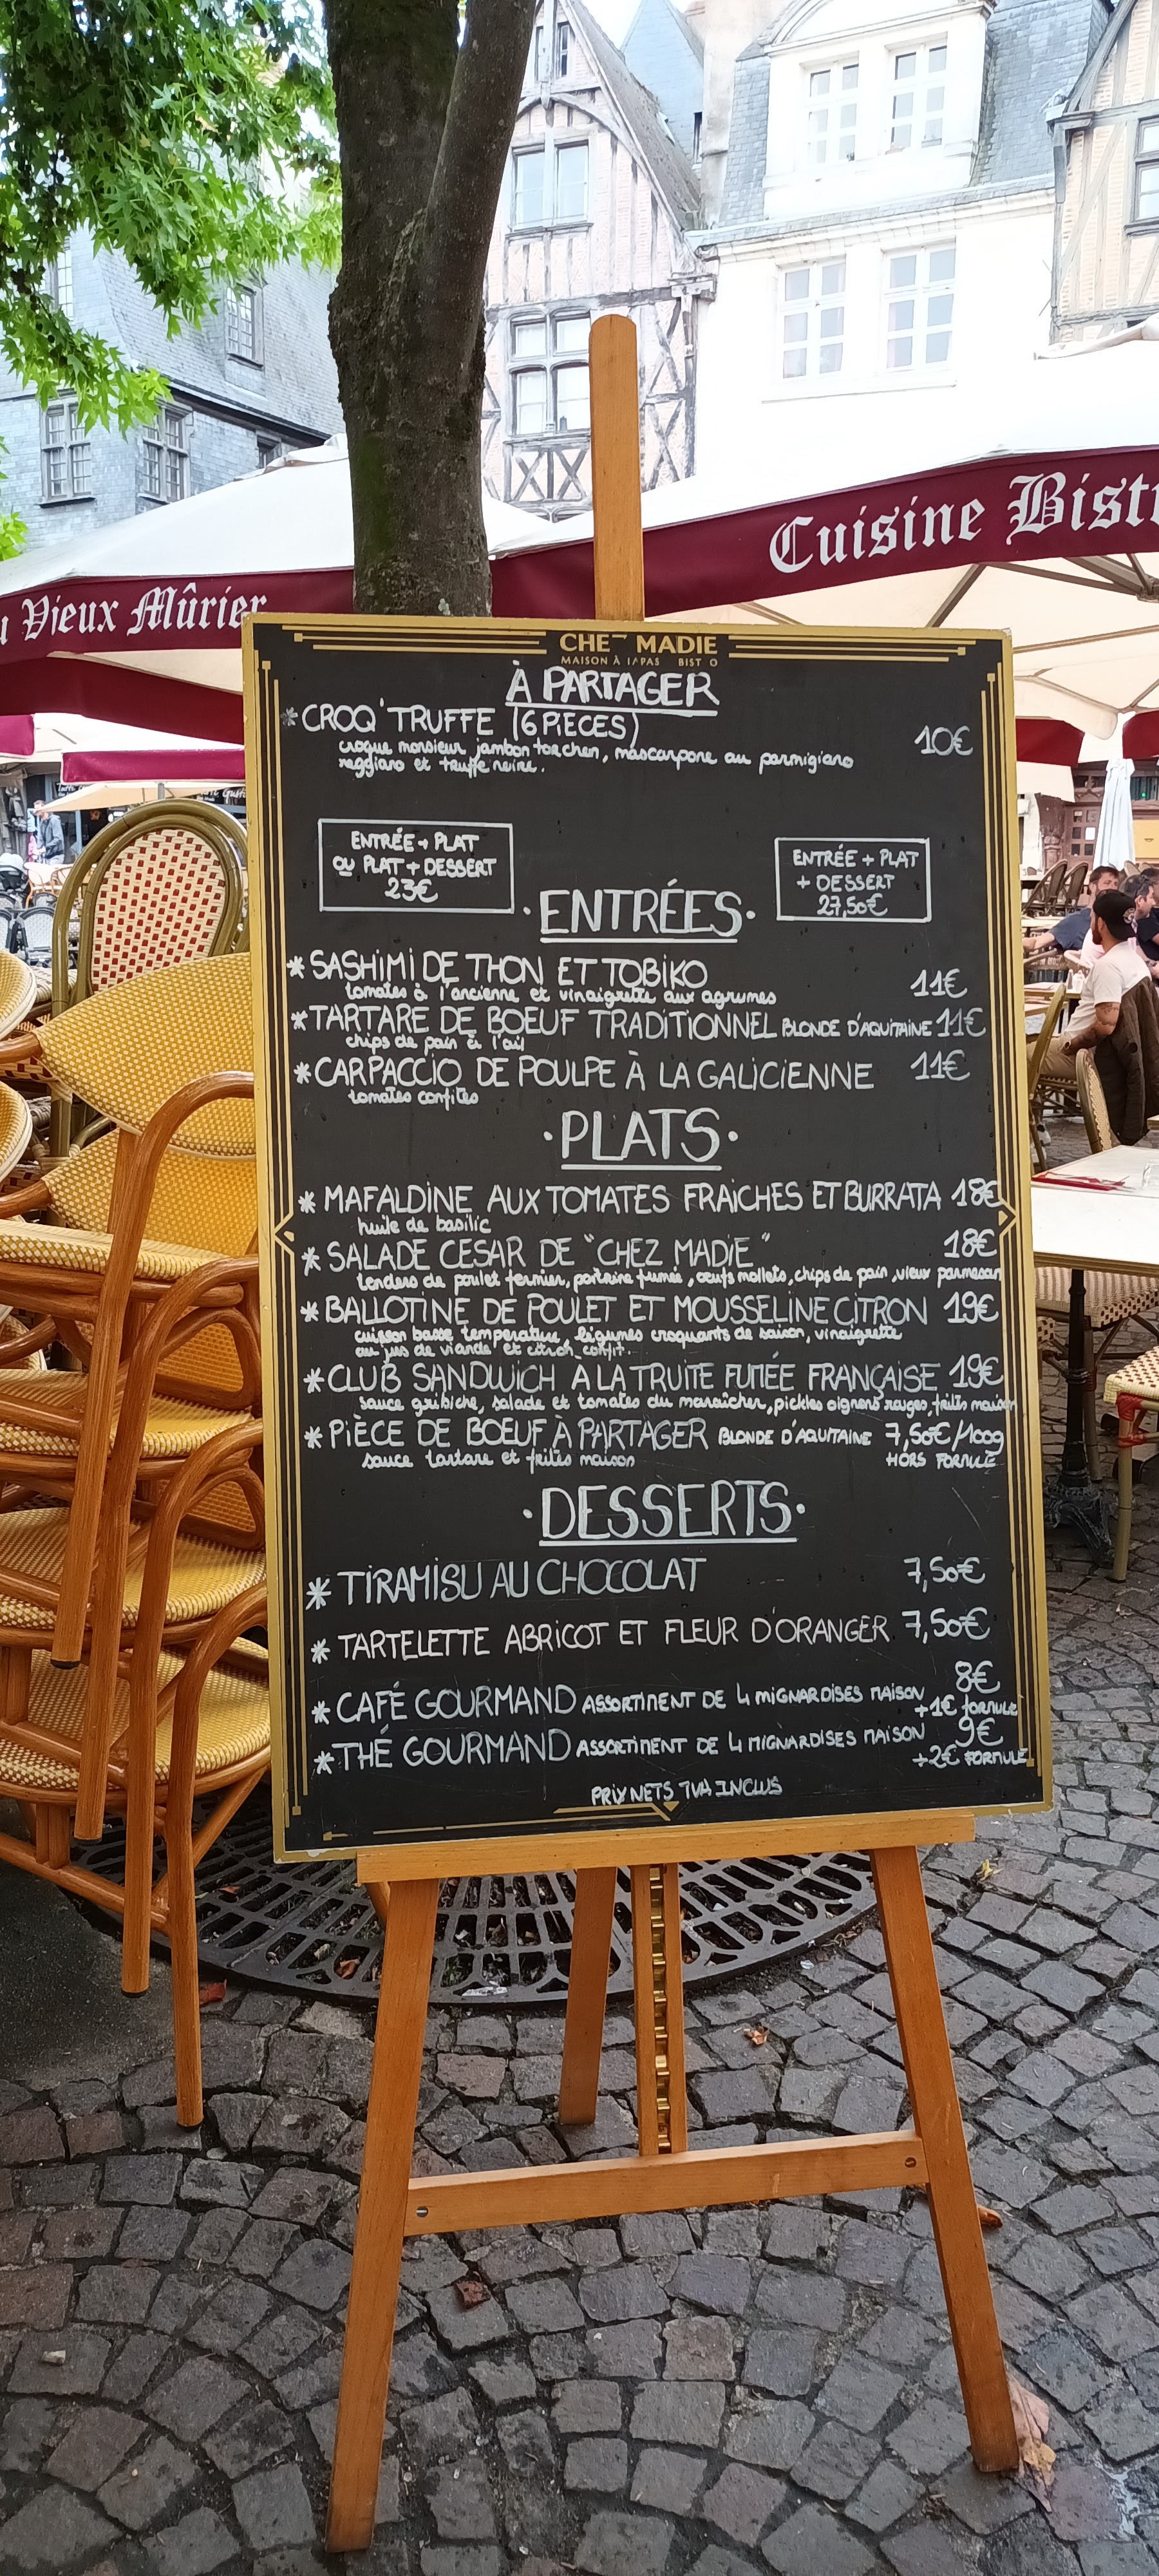 Cuisine Bist
Vieux Mûrier
CHE MADIE
MAISON À TAPAS BIST O
À PARTAGER
*CROQ'TRUFFE (6 PIECES) 10€
croque monsieur jambon torchon, mascarpone au parmigiano
reggiano et truffe noire.
ENTRÉE + PLAT
OU PLAT + DESSERT
23€
ENTRÉE + PLAT
+ DESSERT
27,50€
·ENTRÉES·
*SASHIMI DE THON ET TOBIKO 11€
tomates à l'ancienne et vinaigrette aux agrumes
*TARTARE DE BOEUF TRADITIONNEL BLONDE D'AQUITAINE 11€
chips de pain à l'ail
*CARPACCIO DE POULPE À LA GALICIENNE 11€
tomates confites
·PLATS·
* MAFALDINE AUX TOMATES FRAICHES ET BURRATA 18€
huile de basilic
* SALADE CESAR DE "CHEZ MADIE" 18€
tenders de poulet fermier, poitrine fumée, oeufs mollets, chips de pain, vieux parmesan
* BALLOTINE DE POULET ET MOUSSELINE CITRON 19€
cuisson basse temperature, légumes croquants de saison, vinaigrette
au jus de viande et citron confit.
* CLUB SANDWICH À LA TRUITE FUMÉE FRANÇAISE 19€
sauce gribiche, salade et tomates du maraîcher, pickles oignons rouges, frites maison
* PIÈCE DE BOEUF À PARTAGER BLONDE D'AQUITAINE 7,50€/100g
sauce tartare et frites maison HORS FORMULE
·DESSERTS·
* TIRAMISU AU CHOCOLAT 7,50€
* TARTELETTE ABRICOT ET FLEUR D'ORANGER 7,50€
* CAFÉ GOURMAND ASSORTIMENT DE 4 MIGNARDISES MAISON 8€
+1€ FORMULE
* THÉ GOURMAND ASSORTIMENT DE 4 MIGNARDISES MAISON 9€
+2€ FORMULE
PRIX NETS TVA INCLUS